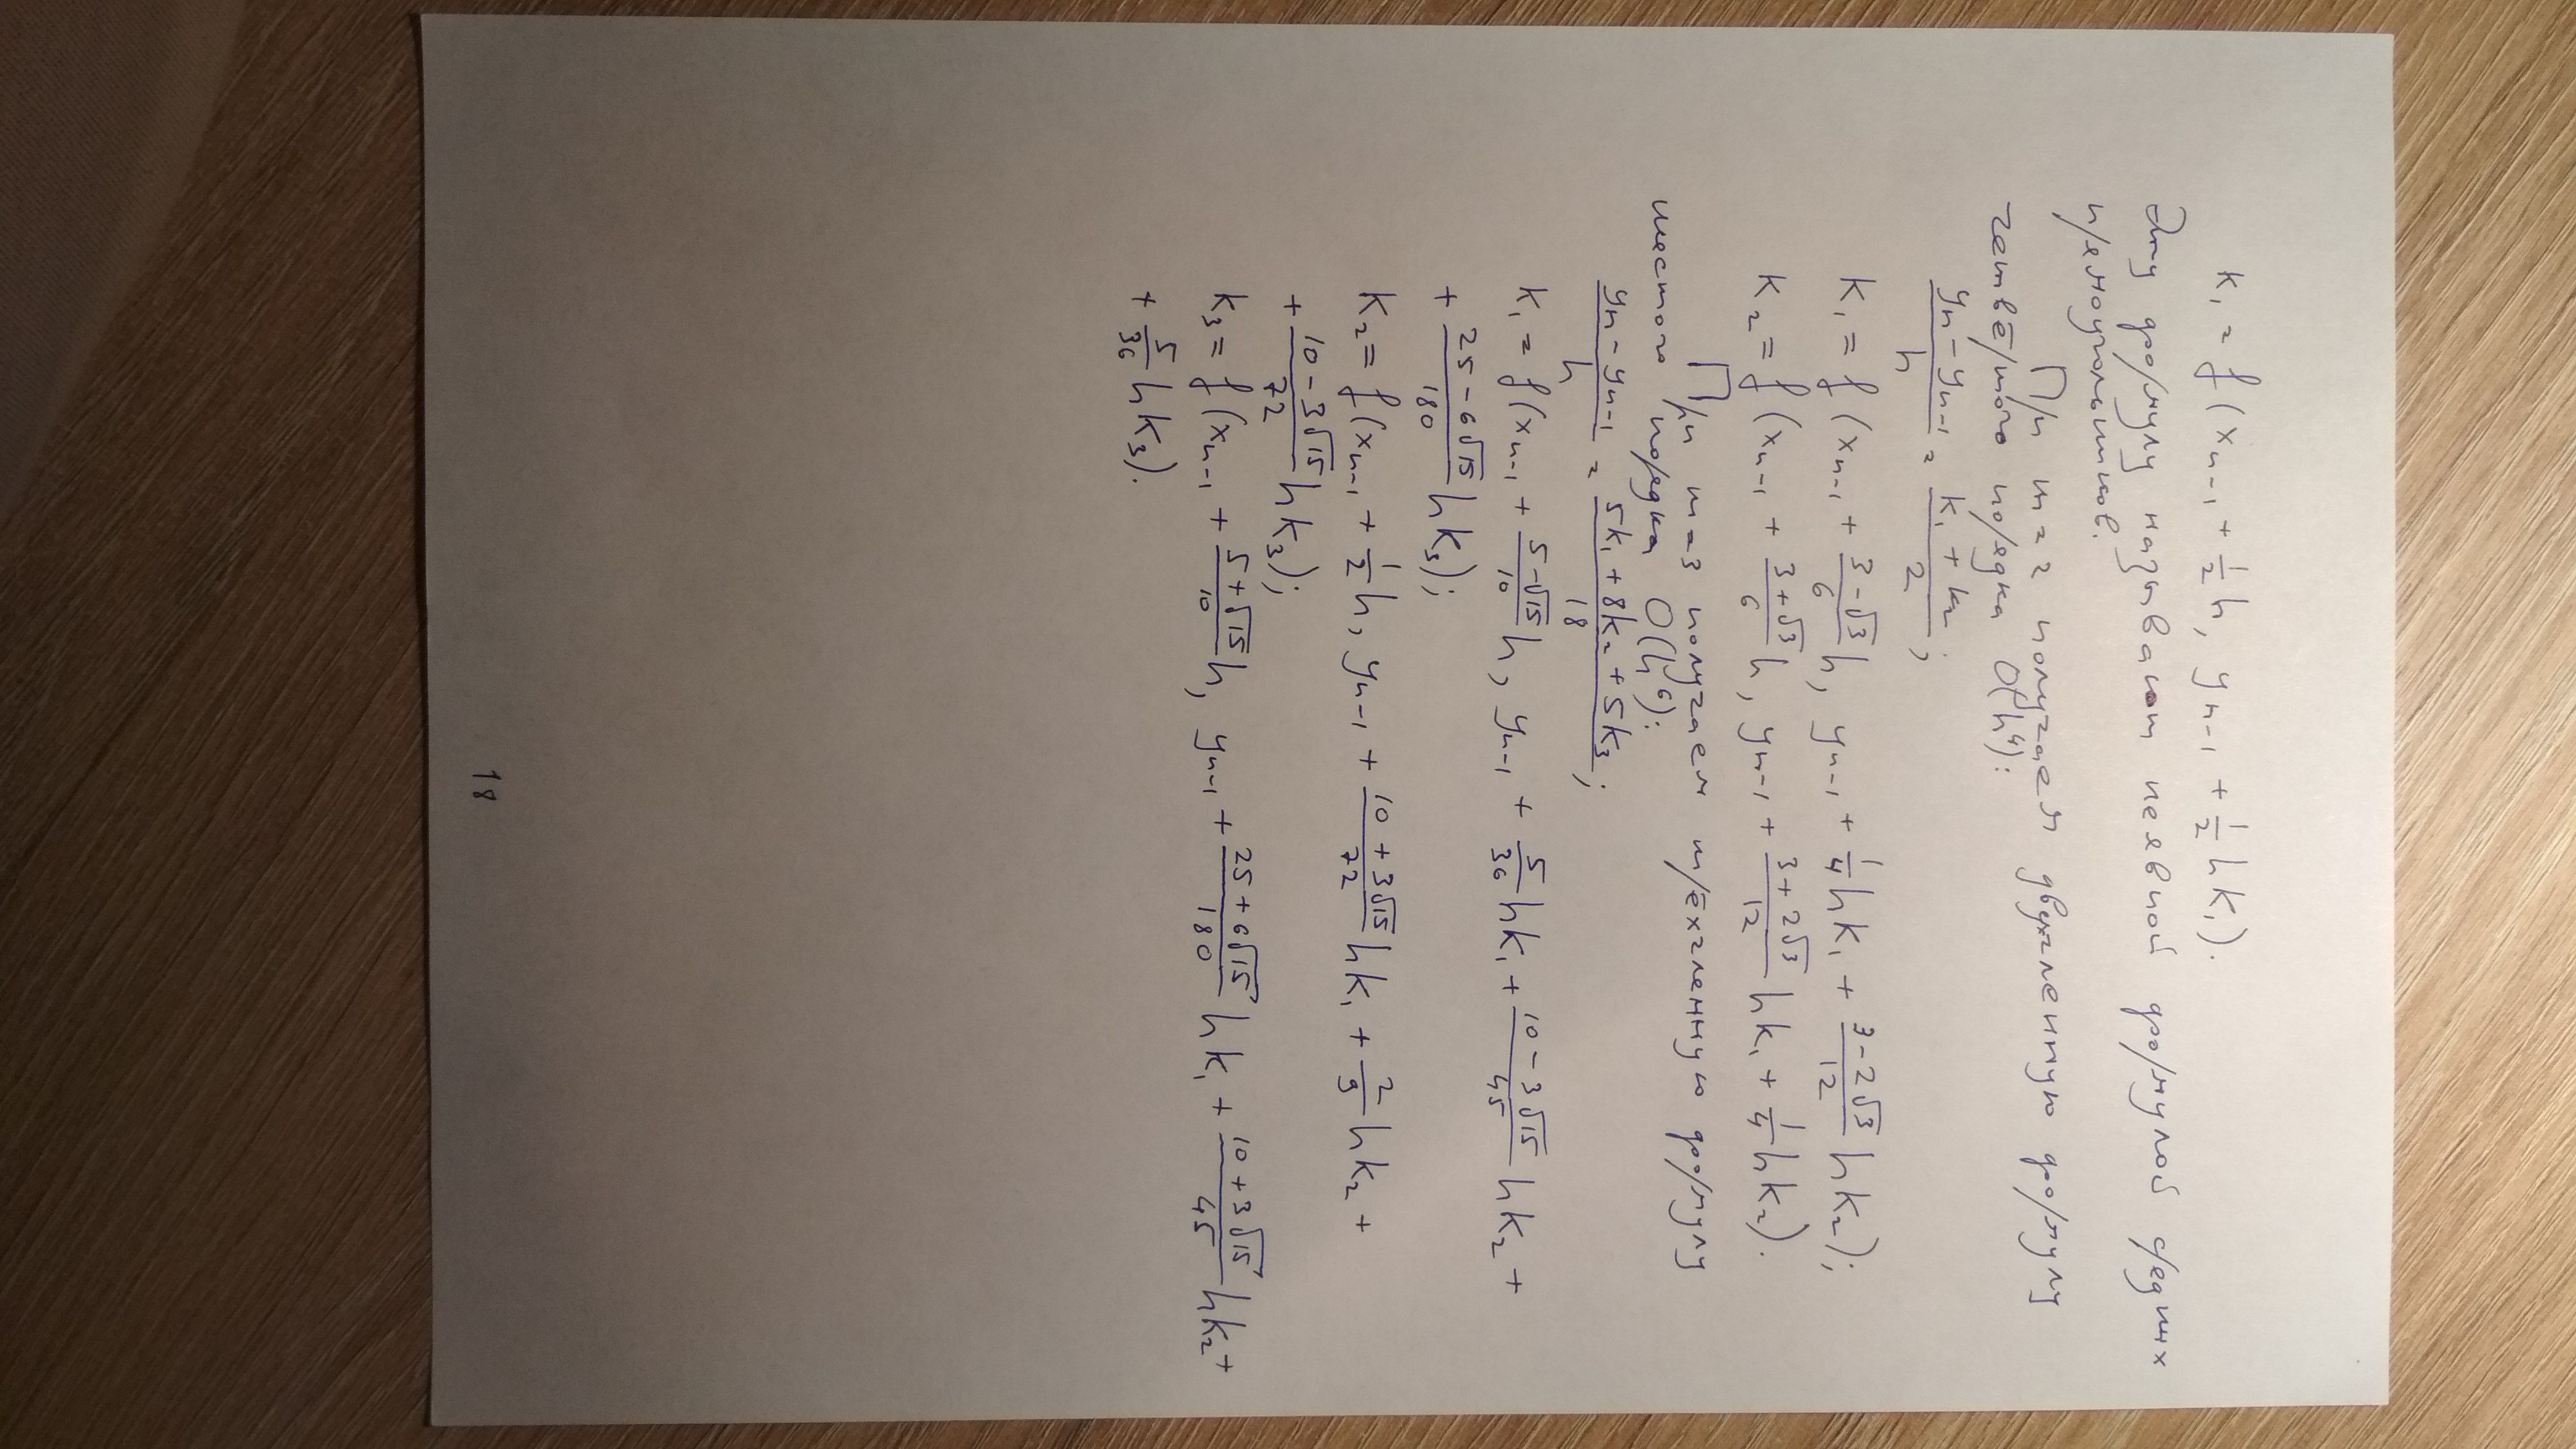 k₁ = f(xₙ₋₁ + 1/2 h, yₙ₋₁ + 1/2 hk₁).
Эту формулу называют неявной формулой средних
прямоугольников.
При m = 2 получаем двухчленную формулу
четвёртого порядка O(h⁴):
(yₙ - yₙ₋₁)/h = (k₁ + k₂)/2;
k₁ = f(xₙ₋₁ + (3-√3)/6 h, yₙ₋₁ + 1/4 hk₁ + (3-2√3)/12 hk₂);
k₂ = f(xₙ₋₁ + (3+√3)/6 h, yₙ₋₁ + (3+2√3)/12 hk₁ + 1/4 hk₂).
При m = 3 получаем трёхчленную формулу
шестого порядка O(h⁶):
(yₙ - yₙ₋₁)/h = (5k₁ + 8k₂ + 5k₃)/18;
k₁ = f(xₙ₋₁ + (5-√15)/10 h, yₙ₋₁ + 5/36 hk₁ + (10-3√15)/45 hk₂ +
+ (25-6√15)/180 hk₃);
k₂ = f(xₙ₋₁ + 1/2 h, yₙ₋₁ + (10+3√15)/72 hk₁ + 2/9 hk₂ +
+ (10-3√15)/72 hk₃);
k₃ = f(xₙ₋₁ + (5+√15)/10 h, yₙ₋₁ + (25+6√15)/180 hk₁ + (10+3√15)/45 hk₂ +
+ 5/36 hk₃).
18